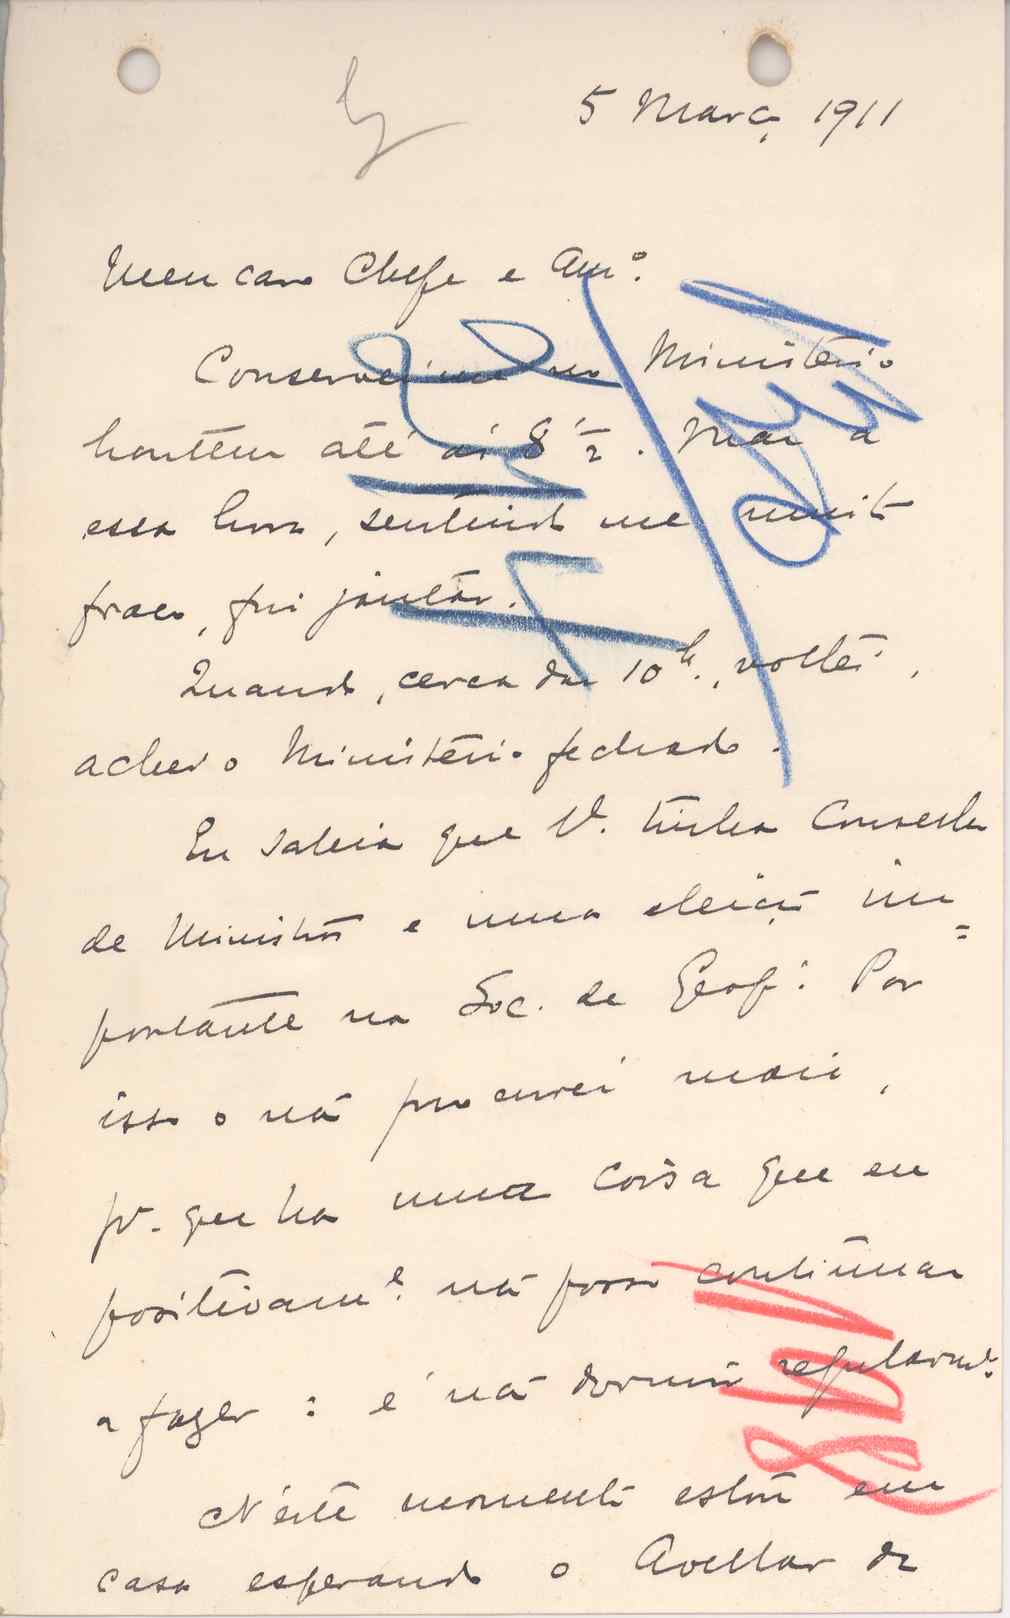 5 Março 1911
Meu caro Chefe e Amº.
Conservei-me no Ministério
hontem até ás 8 ½. Mas a
essa hora, sentindo me muito
fraco, fui jantar.
Quando, cerca das 10h., voltei,
achei o Ministério fechado.
Eu sabia que V. tinha Conselho
de Ministros e uma eleição im=
portante na Soc. de Geogr. Por
isso o não procurei mais,
pr. que ha uma coisa que eu
positivame. não posso continuar
a fazer: é não dormir regularme.
N'este momento estou em
casa esperando o Avellar de